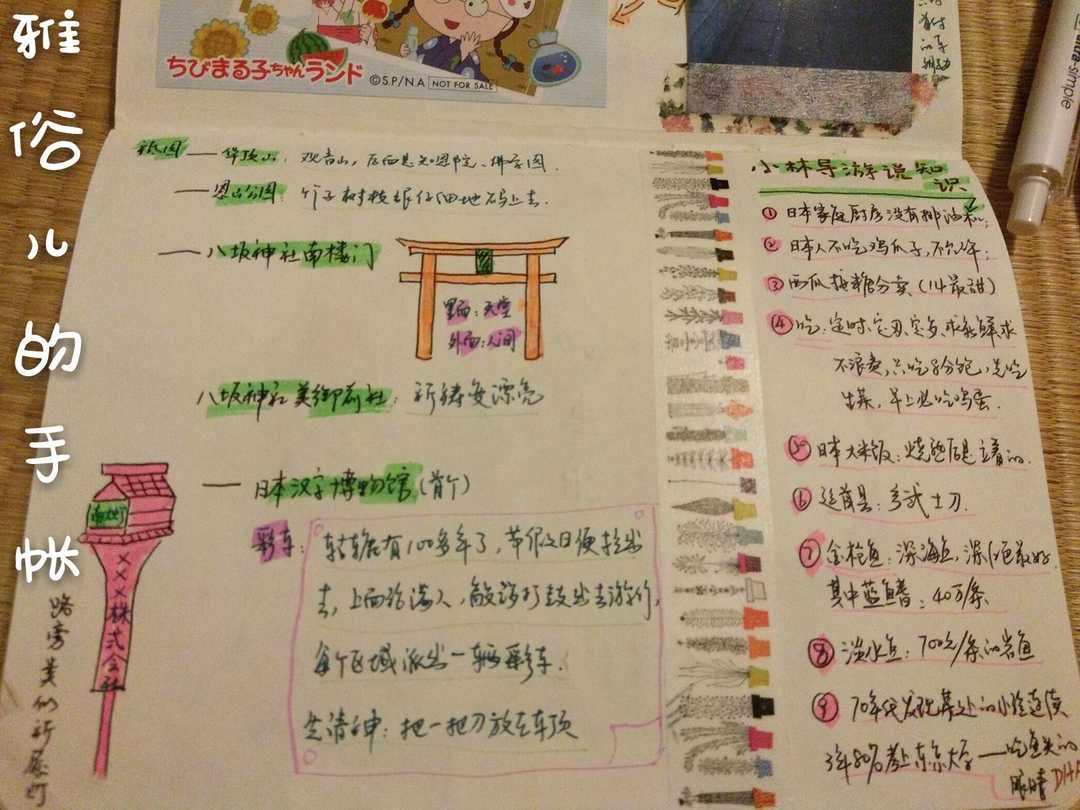 雅俗儿的手帐
ちびまる子ちゃんランド
©S.P/N.A NOT FOR SALE
祇园——华顶山:观音山,左面是知恩院、佛学园
——圆山公园:竹子树枝
——八坂神社南楼门
里面:天堂
外面:人间
八坂神社美御前社:祈祷变漂亮
——日本汉字博物馆(首个)
彩车:
轱辘有100多年了,节假日便拉出
去,上面站满人,敲锣打鼓出去游行,
每个区域派出一辆彩车.
先请神:把一把刀放在车顶
×××株式会社
路旁类似祈愿灯
小林导游说知识
① 日本家庭厨房没有排油机;
② 日本人不吃鸡爪子,
③ 西瓜按糖分卖(14最甜)
④ 吃:定时、定
不浪费,只吃8分饱,先吃
生菜,早上必吃鸡蛋.
⑤ 日本大米饭:烧熟后是立着的.
⑥ 武士刀.
⑦ 金枪鱼:深海鱼,深
其中蓝鱼鳍:40万/条
⑧ 淡水鱼:700元/条的岩鱼
⑨ 70年代发现某处的小
3年80%考上东京大学——吃鱼头的
眼睛 DHA